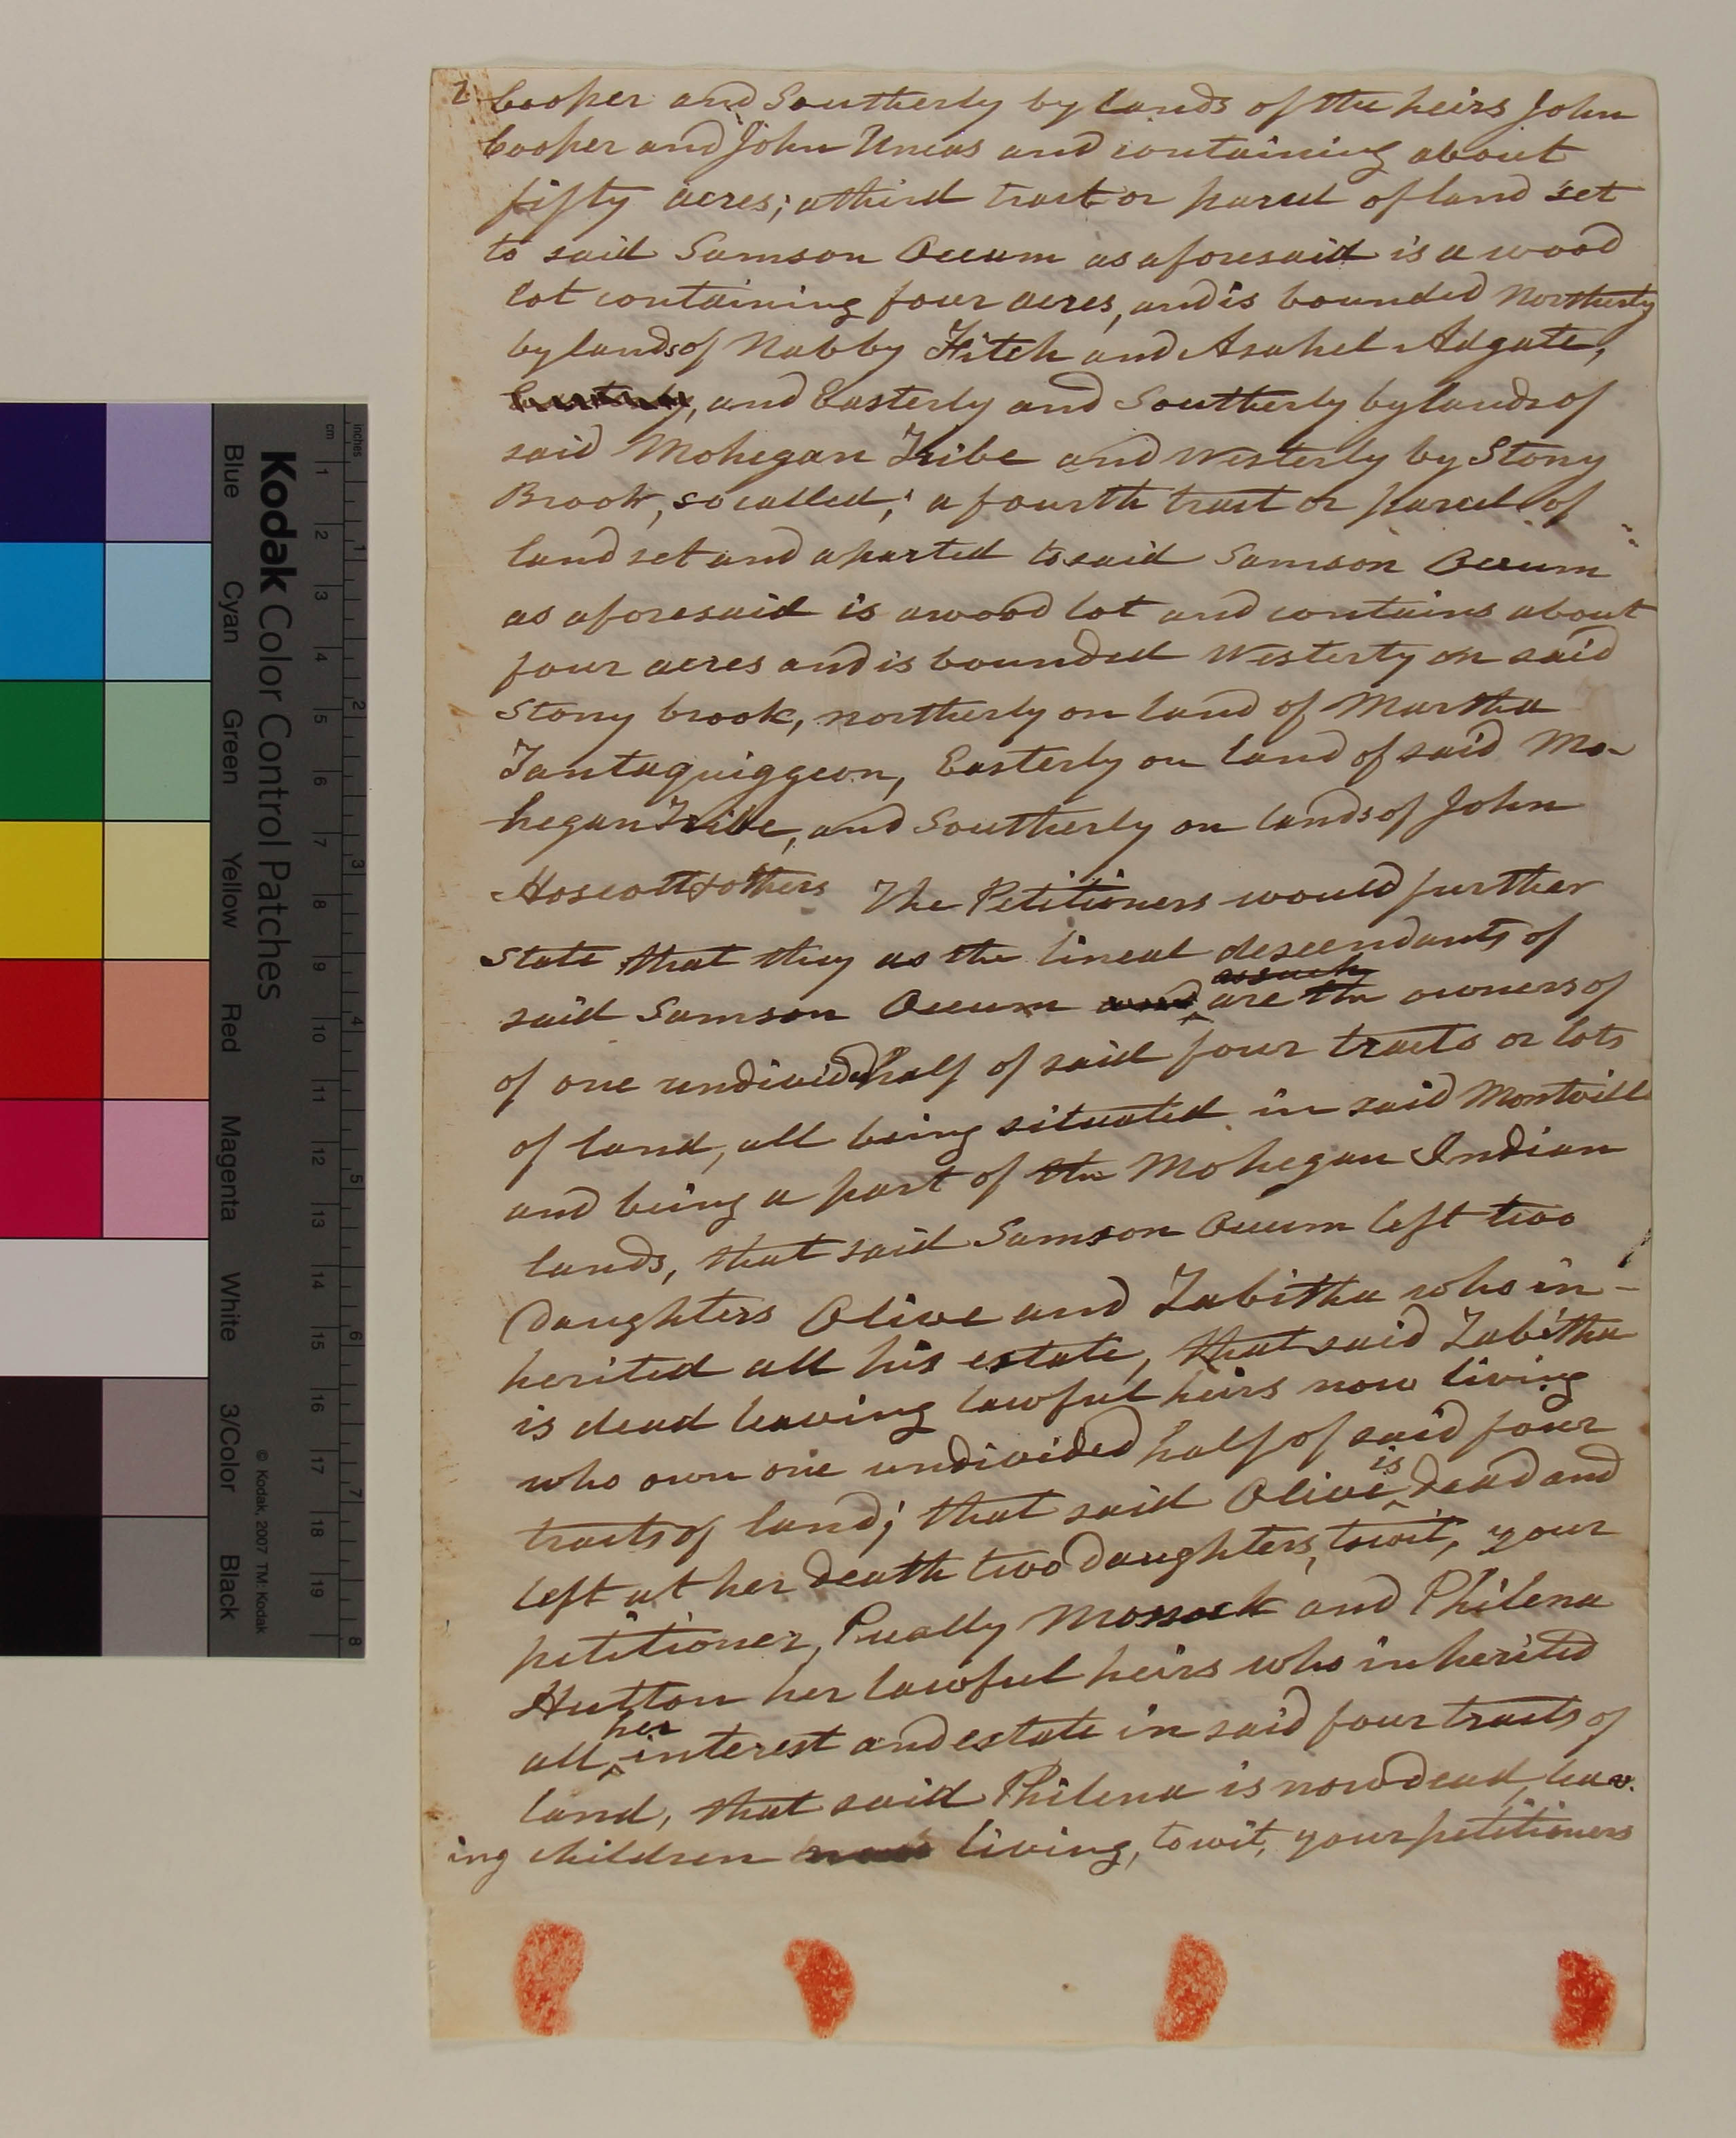 2 Cooper and Southerly by lands of the heirs John
Cooper and John Uncas and containing about
fifty acres; a third tract or parcel of land set
to said Samson Occum as aforesaid is a wood
lot containing four acres, and is bounded Northerly
by lands of Nabby Fitch and Asahel Adgate,
and Easterly and Southerly by lands of
said Mohegan Tribe and Westerly by Stony
Brook, so called; a fourth tract or parcel of
land set and aparted to said Samson Occum
as aforesaid is a wood lot and contains about
four acres and is bounded Westerly on said
Stony brook, northerly on land of Martha
Tantaquiggeon, Easterly on land of said Mo-
hegan Tribe, and Southerly on lands of John
Hoscott & others The Petitioners would further
State that they as the lineal descendants of
as such
said Samson Occum and are the owners of
of one undivided half of said four tracts or lots
of land, all being situated in said Montvill
and being a part of the Mohegan Indian
lands, that said Samson Occum left two
Daughters Olive and Tabitha who in-
herited all his estate, that said Tabitha
is dead leaving lawful heirs now living
who own one undivided half of said four
is
tracts of land; that said Olive dead and
left at her death two daughters, towit, your
petitioner, Pually Mossuck and Philena
Hutton her lawful heirs who inherited
her
all interest and estate in said four tracts of
land, that said Philena is now dead, leav.
ing children now living, to wit, your petitioners
Kodak Color Control Patches
© Kodak, 2007 TM: Kodak
Blue Cyan Green Yellow Red Magenta White 3/Color Black
cm 1 2 3 4 5 6 7 8 9 10 11 12 13 14 15 16 17 18 19
inches 1 2 3 4 5 6 7 8